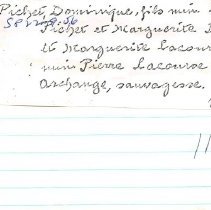 Pichet, Dominique, fils min
Pichet et Marguerite
et Marguerite Lacour
min Pierre Lacourse
Archange, sauvagesse.